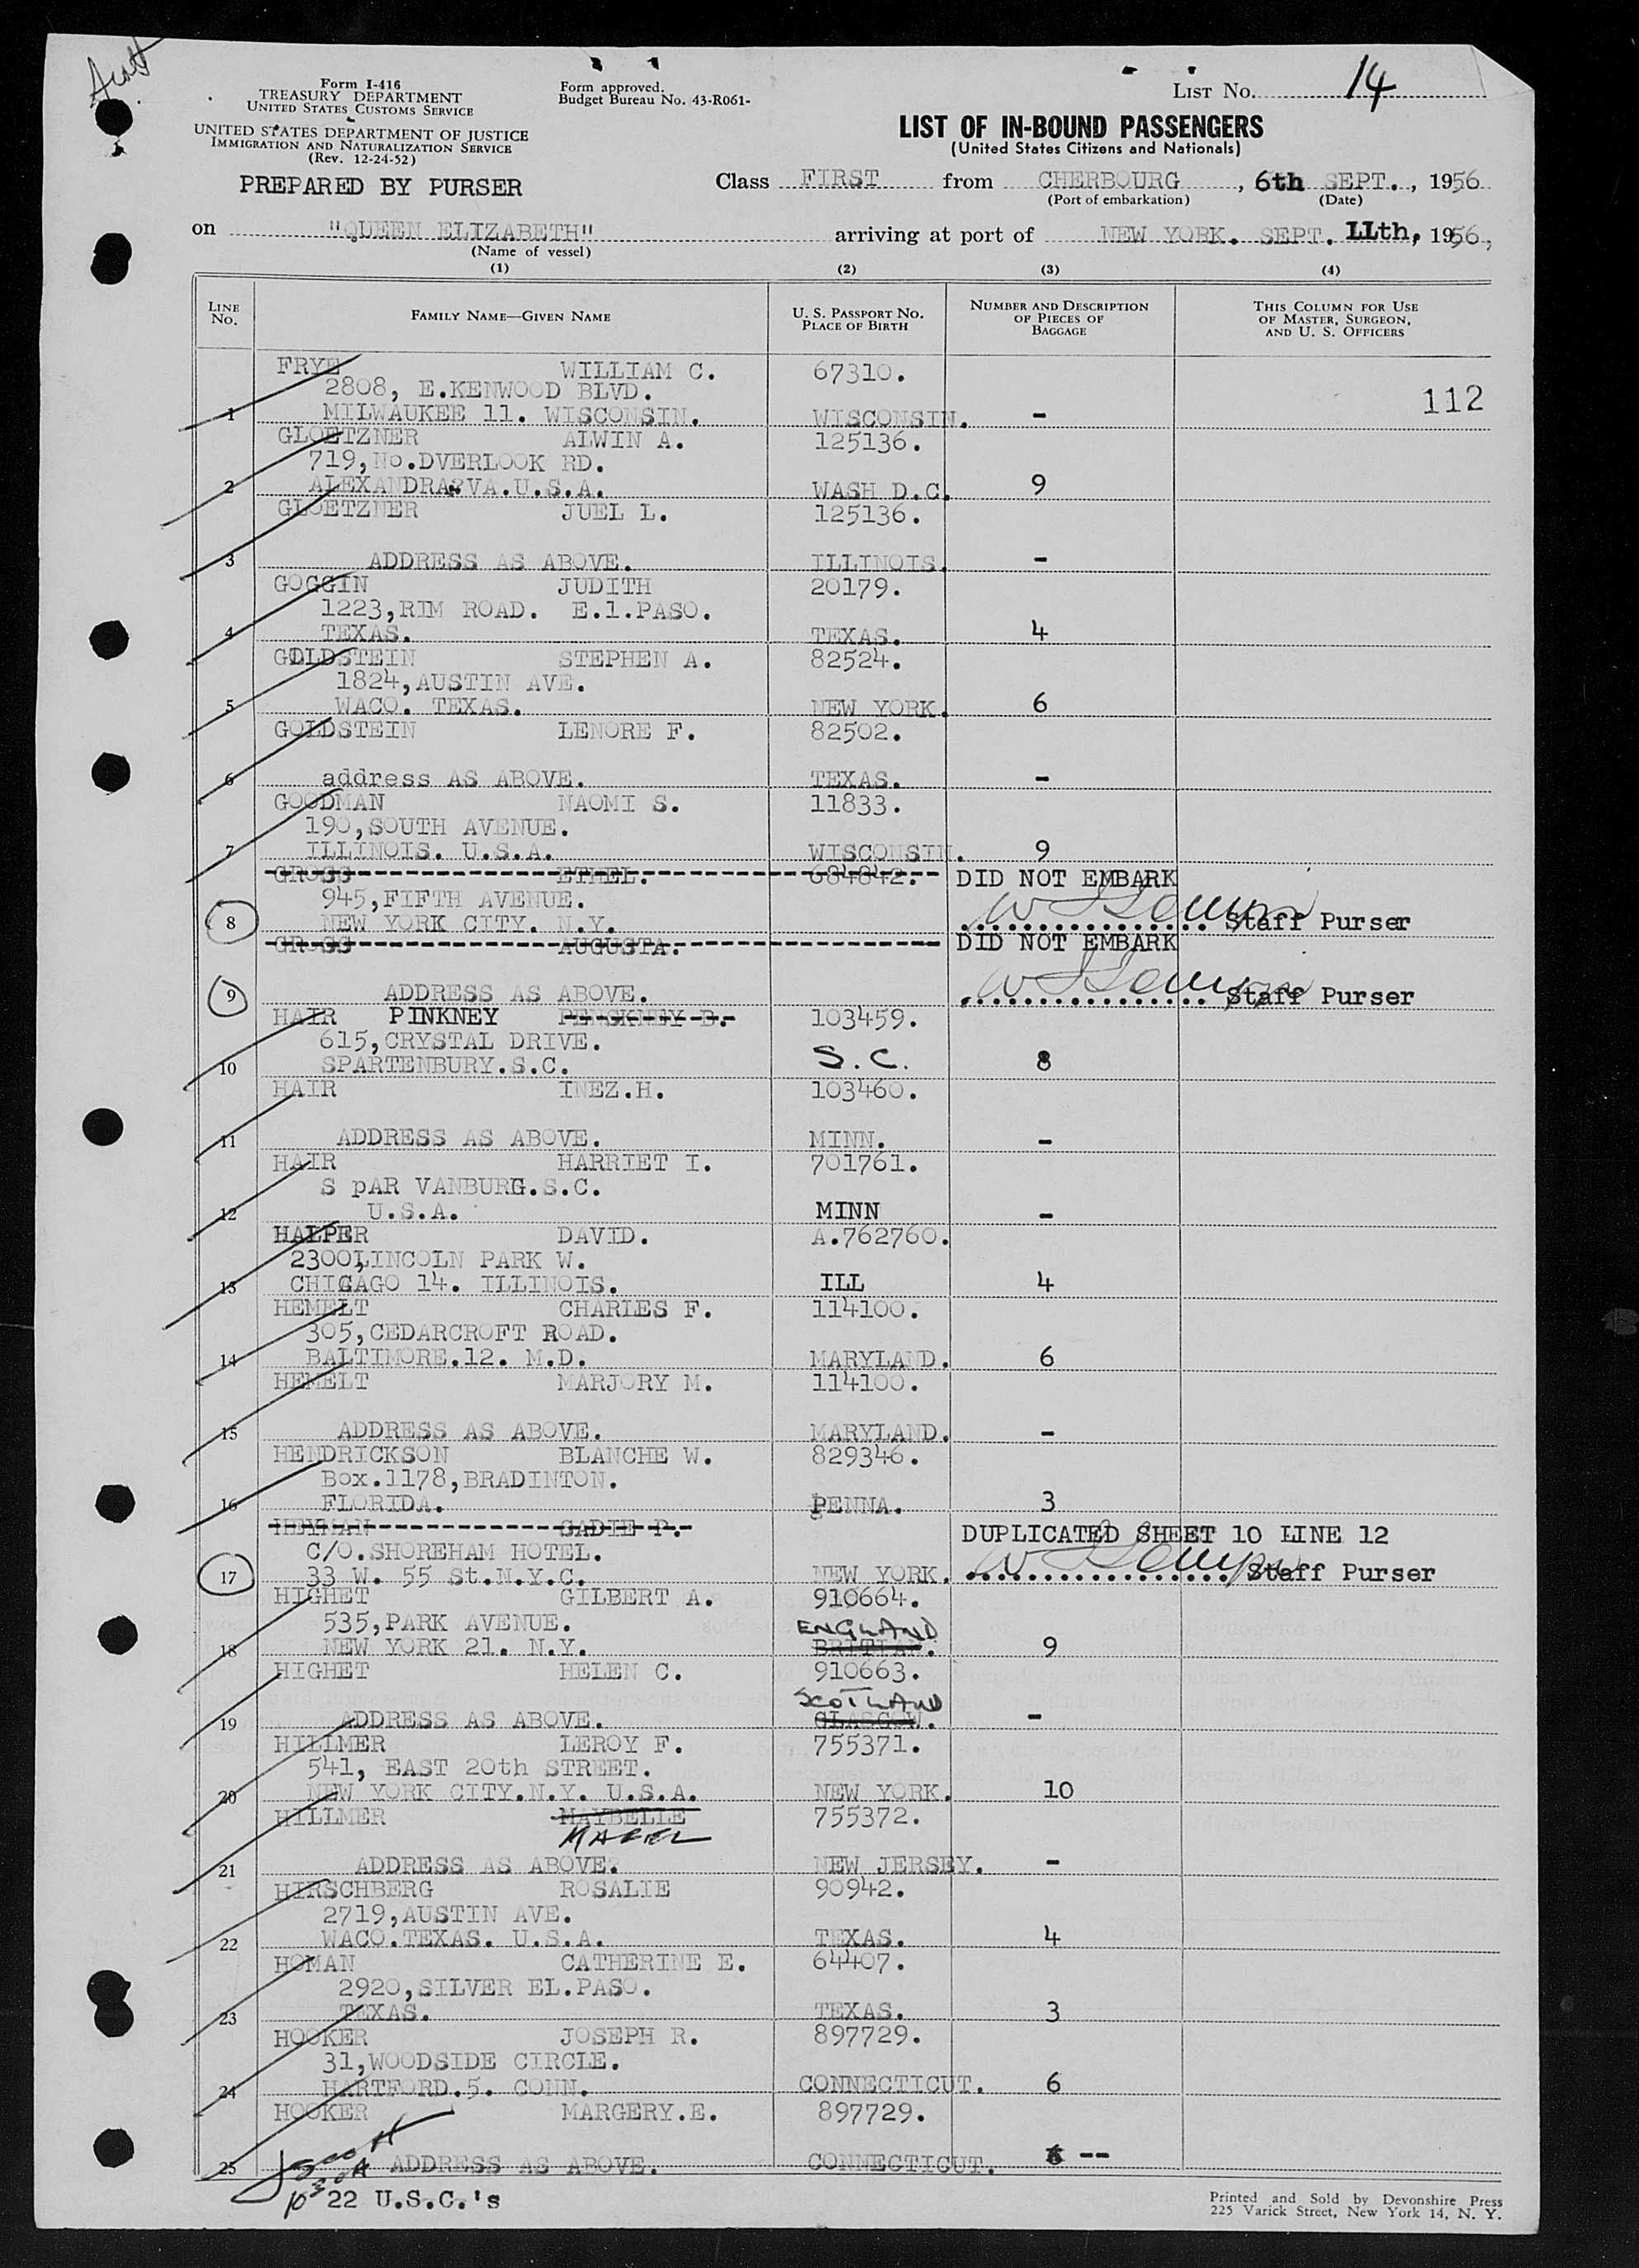 Scott
Form I-416
TREASURY DEPARTMENT
UNITED STATES CUSTOMS SERVICE
UNITED STATES DEPARTMENT OF JUSTICE
IMMIGRATION AND NATURALIZATION SERVICE
(Rev. 12-24-52)
PREPARED BY PURSER
Form approved.
Budget Bureau No. 43-R061-
LIST NO. 14
LIST OF IN-BOUND PASSENGERS
(United States Citizens and Nationals)
Class FIRST from CHERBOURG, 6th SEPT., 1956
(Port of embarkation) (Date)
on "QUEEN ELIZABETH" arriving at port of NEW YORK. SEPT. 11th, 1956,
(Name of vessel)
(1) (2) (3) (4)
LINE NO. FAMILY NAME—GIVEN NAME U. S. PASSPORT NO. PLACE OF BIRTH NUMBER AND DESCRIPTION OF PIECES OF BAGGAGE THIS COLUMN FOR USE OF MASTER, SURGEON, AND U. S. OFFICERS
FRYE WILLIAM C. 67310.
2808, E.KENWOOD BLVD.
112
1 MILWAUKEE 11. WISCONSIN. WISCONSIN. -
GLOETZNER ALWIN A. 125136.
719,No.DVERLOOK RD.
2 ALEXANDRA VA.U.S.A. WASH D.C. 9
GLOETZNER JUEL L. 125136.
3 ADDRESS AS ABOVE. ILLINOIS. -
GOGGIN JUDITH 20179.
1223,RIM ROAD. E.l.PASO.
4 TEXAS. TEXAS. 4
GOLDSTEIN STEPHEN A. 82524.
1824,AUSTIN AVE.
5 WACO. TEXAS. NEW YORK. 6
GOLDSTEIN LENORE F. 82502.
6 address AS ABOVE. TEXAS. -
GOODMAN NAOMI S. 11833.
190,SOUTH AVENUE.
7 ILLINOIS. U.S.A. WISCONSIN. 9
GROSS ETHEL. 684842. DID NOT EMBARK
945,FIFTH AVENUE.
8 NEW YORK CITY. N.Y. Staff Purser
GROSS AUGUSTA. DID NOT EMBARK
9 ADDRESS AS ABOVE. Staff Purser
HAIR PINKNEY PENCKNEY B. 103459.
615,CRYSTAL DRIVE.
10 SPARTENBURY.S.C. S.C. 8
HAIR INEZ.H. 103460.
11 ADDRESS AS ABOVE. MINN. -
HAIR HARRIET I. 701761.
S pAR VANBURG.S.C.
12 U.S.A. MINN -
HALPER DAVID. A.762760.
2300,LINCOLN PARK W.
13 CHICAGO 14. ILLINOIS. ILL 4
HEMELT CHARLES F. 114100.
305,CEDARCROFT ROAD.
14 BALTIMORE.12. M.D. MARYLAND. 6
HEMELT MARJORY M. 114100.
15 ADDRESS AS ABOVE. MARYLAND. -
HENDRICKSON BLANCHE W. 829346.
Box.1178,BRADINTON.
16 FLORIDA. PENNA. 3
HEYMAN SADIE P. DUPLICATED SHEET 10 LINE 12
C/O.SHOREHAM HOTEL.
17 33 W. 55 St.N.Y.C. NEW YORK. Staff Purser
HIGHET GILBERT A. 910664.
535,PARK AVENUE. ENGLAND
18 NEW YORK 21. N.Y. BRITIAN. 9
HIGHET HELEN C. 910663.
SCOTLAND
19 ADDRESS AS ABOVE. GLASGOW. -
HILLMER LEROY F. 755371.
541, EAST 20th STREET.
20 NEW YORK CITY.N.Y. U.S.A. NEW YORK. 10
HILLMER MAYBELLE 755372.
MABEL
21 ADDRESS AS ABOVE. NEW JERSEY. -
HIRSCHBERG ROSALIE 90942.
2719,AUSTIN AVE.
22 WACO.TEXAS. U.S.A. TEXAS. 4
HOMAN CATHERINE E. 64407.
2920,SILVER EL.PASO.
23 TEXAS. TEXAS. 3
HOOKER JOSEPH R. 897729.
31,WOODSIDE CIRCLE.
24 HARTFORD.5. CONN. CONNECTICUT. 6
HOOKER MARGERY.E. 897729.
25 ADDRESS AS ABOVE. CONNECTICUT. --
22 U.S.C.'s
Printed and Sold by Devonshire Press
225 Varick Street, New York 14, N. Y.